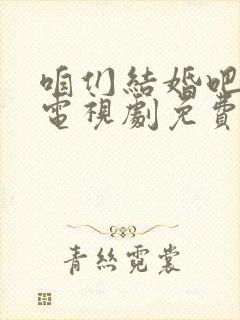 咱们結婚吧
電視劇免費
青絲霓裳